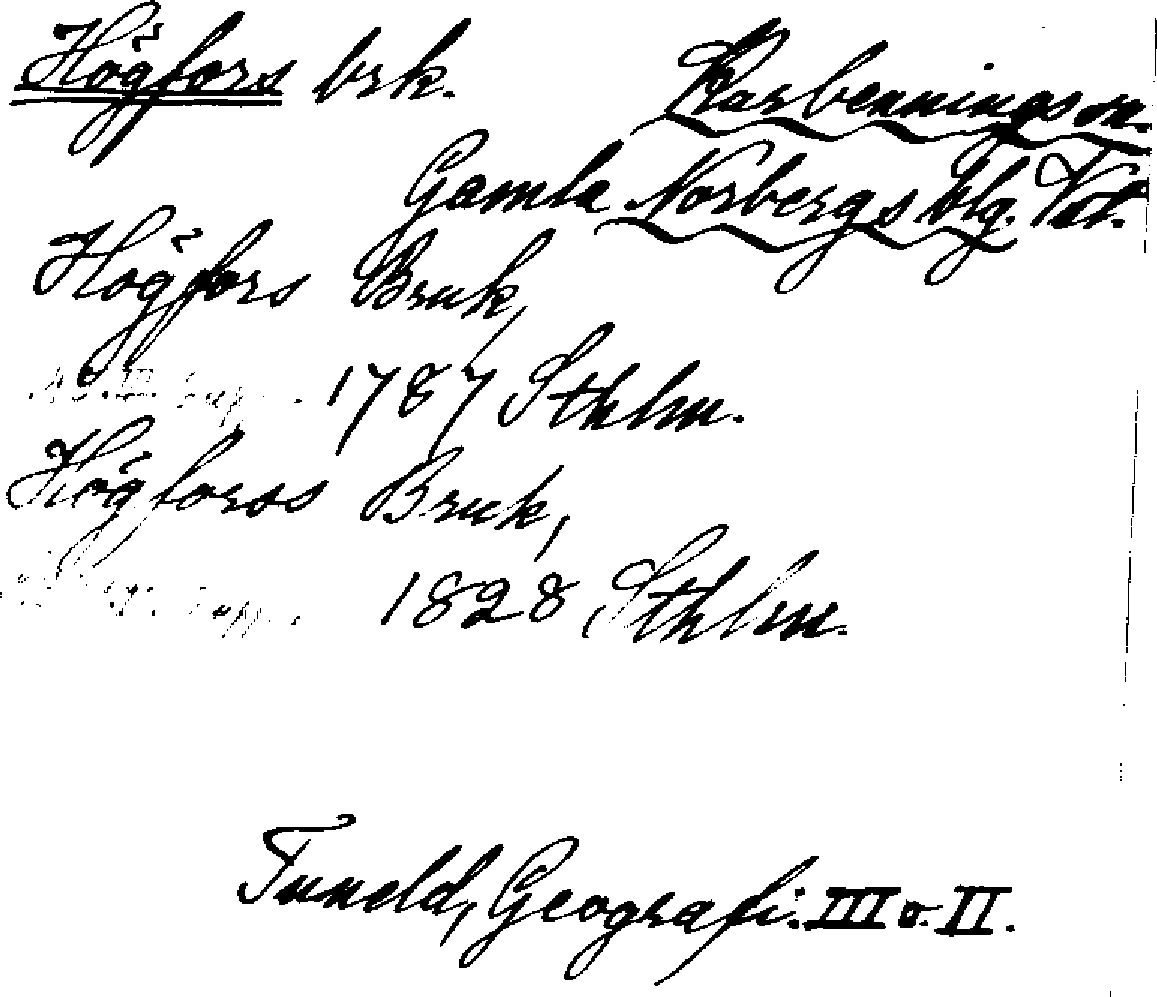 Högfors brk. Karbennings sn.
Gamla Norbergs blg. Vstm.
Högfors Bruk,
1787 Sthlm.
Högforss Bruk,
1828 Sthlm.
Tuneld, Geografi. III o. II.